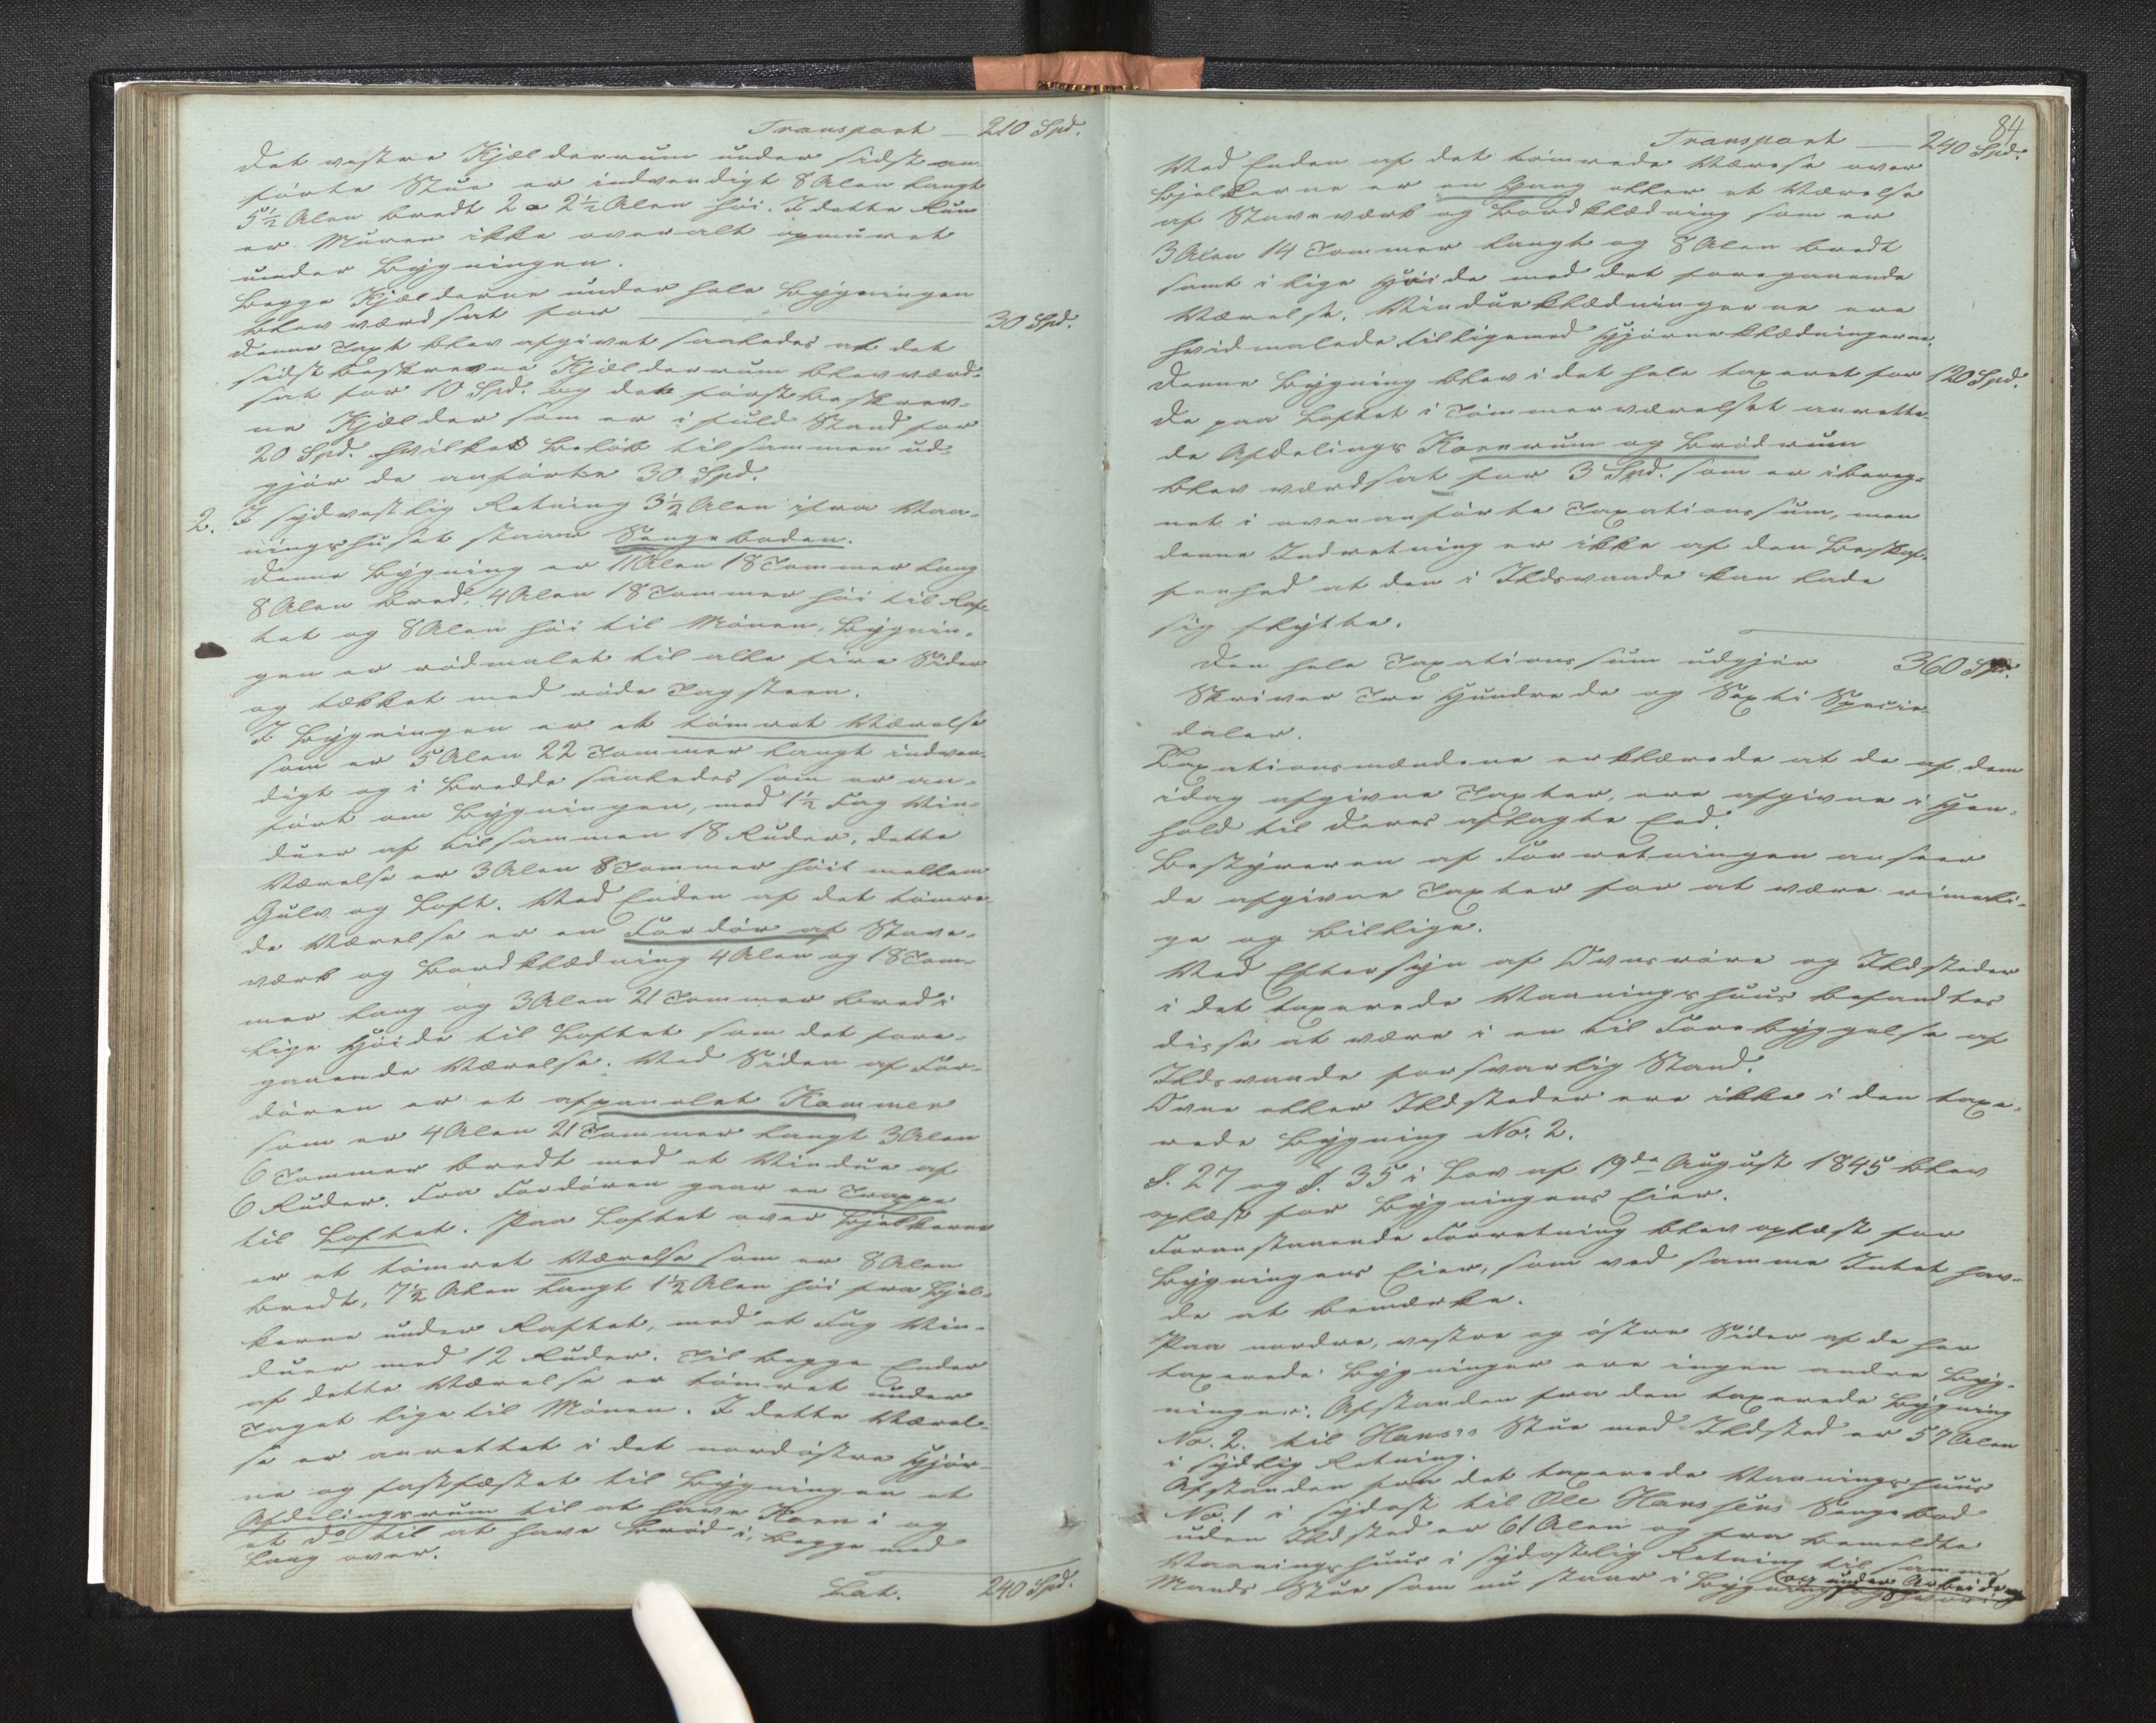 Transport — 210 Spd.
det vestre Kjælderrum under sidst an-
førte Stue er indvendigt 8 Alen langt
5½ Alen bredt 2 a 2½ Alen høi. I dette Rum
er Muren ikke overalt opmuret
under Bygningen.
Begge Kjælderne under hele Bygningen
blev værdsat for — 30 Spd.
Denne Taxt blev afgivet saaledes at det
sidst beskrevne Kjælderrum blev værd-
sat for 10 Spd. og det først beskrev-
ne Kjælder som er i fuld Stand for
20 Spd. hvilket Beløb tilsammen ud-
gjør de anførte 30 Spd.
2. I sydvestlig Retning 3½ Alen ifra Vaa-
ningshuset staar Sengeboden.
Denne Bygning er 11 Alen 18 Tommer lang
8 Alen bred, 4 Alen 18 Tommer høi til Raf-
tet og 8 Alen høi til Mønen, Bygnin-
gen er rødmalet til alle fire Sider
og tækket med røde Tagsteen.
I Bygningen er et tømret Værelse
som er 5 Alen 22 Tommer langt indven-
digt og i Bredde saaledes som er an-
ført om Bygningen, med 1½ Fag Vin-
duer af tilsammen 18 Ruder, dette
Værelse er 3 Alen 8 Tommer høit mellem
Gulv og Loft. Ved Enden af det tømre-
de Værelse er en Fordør af Stave-
værk og Bordklædning 4 Alen og 18 Tom-
mer lang og 3 Alen 21 Tommer bred i
lige Høide til Loftet som det fore-
gaaende Værelse. Ved Siden af For-
døren er et afpanelet Kammer
som er 4 Alen 21 Tommer langt 3 Alen
6 Tommer bredt med et Vindue af
6 Ruder. Fra Fordøren gaar en Trappe
til Loftet. Paa Loftet over Bjelkerne
er et tømret Værelse som er 8 Alen
bredt, 7½ Alen langt 1½ Alen høi fra Bjel-
kerne under Raftet, med et Fag Vin-
duer med 12 Ruder. Til begge Ender
af dette Værelse er tømret under
Taget lige til Mønen. I dette Værel-
se er anrettet i det nordøstre Hjør-
ne og fastfæstet til Bygningen et
Afdelingsrum til at have Korn i og
et do til at have Brød i, begge med
Laag over.
Lat. 240 Spd.
84
Transport — 240 Spd.
Ved Enden af det tømrede Værelse over
Bjelkerne er en Gang eller et Værelse
af Staveværk og Bordklædning som er
3 Alen 14 Tommer langt og 8 Alen bredt
samt i lige Høide med det foregaaende
Værelse. Vindueklædningerne ere
hvidmalede tilligemed Hjørneklædningerne.
Denne Bygning blev i det hele taxeret for 120 Spd.
De paa Loftet i Tømmerværelset anrette-
de Afdelings Kornrum og Brødrum
blev værdsat for 3 Spd. som er ibereg-
net i ovenanførte Taxationssum, men
denne Indretning er ikke af den Beskaf-
fenhed at den i Ildsvaade kan lade
sig flytte.
Den hele Taxationssum udgjør 360 Spd.
Skriver Tre Hundrede og Sexti Specie-
daler.
Taxationsmændene erklærede at de af dem
idag afgivne Taxter, ere afgivne i Hen-
hold til deres aflagte Eed.
Bestyreren af Forretningen anseer
de afgivne Taxter for at være rimeli-
ge og billige.
Ved Eftersyn af Ovnsrøre og Ildsteder
i det taxerede Vaaningshuus befandtes
disse at være i en til Forebyggelse af
Ildsvaade forsvarlig Stand.
Ovne eller Ildsteder ere ikke i den taxe-
rede Bygning No. 2.
§. 27 og §. 35 i Lov af 19de August 1845 blev
oplæst for Bygningens Eier.
Foranstaaende Forretning blev oplæst for
Bygningens Eier, som ved samme Intet hav-
de at bemærke.
Paa nordre, vestre og østre Sider af de her
taxerede Bygninger ere ingen andre Byg-
ninger. Afstanden fra den taxerede Bygning
No. 2. til Hans's Stue med Ildsted er 57 Alen
i sydlig Retning.
Afstanden fra det taxerede Vaaningshuus
No. 1 i sydost til Ole Hanssens Sengebod
uden Ildsted er 61 Alen og fra bemeldte
Vaaningshuus i sydostlig Retning til samme
Mands Stue som nu staar i Bygning og under Arbeide